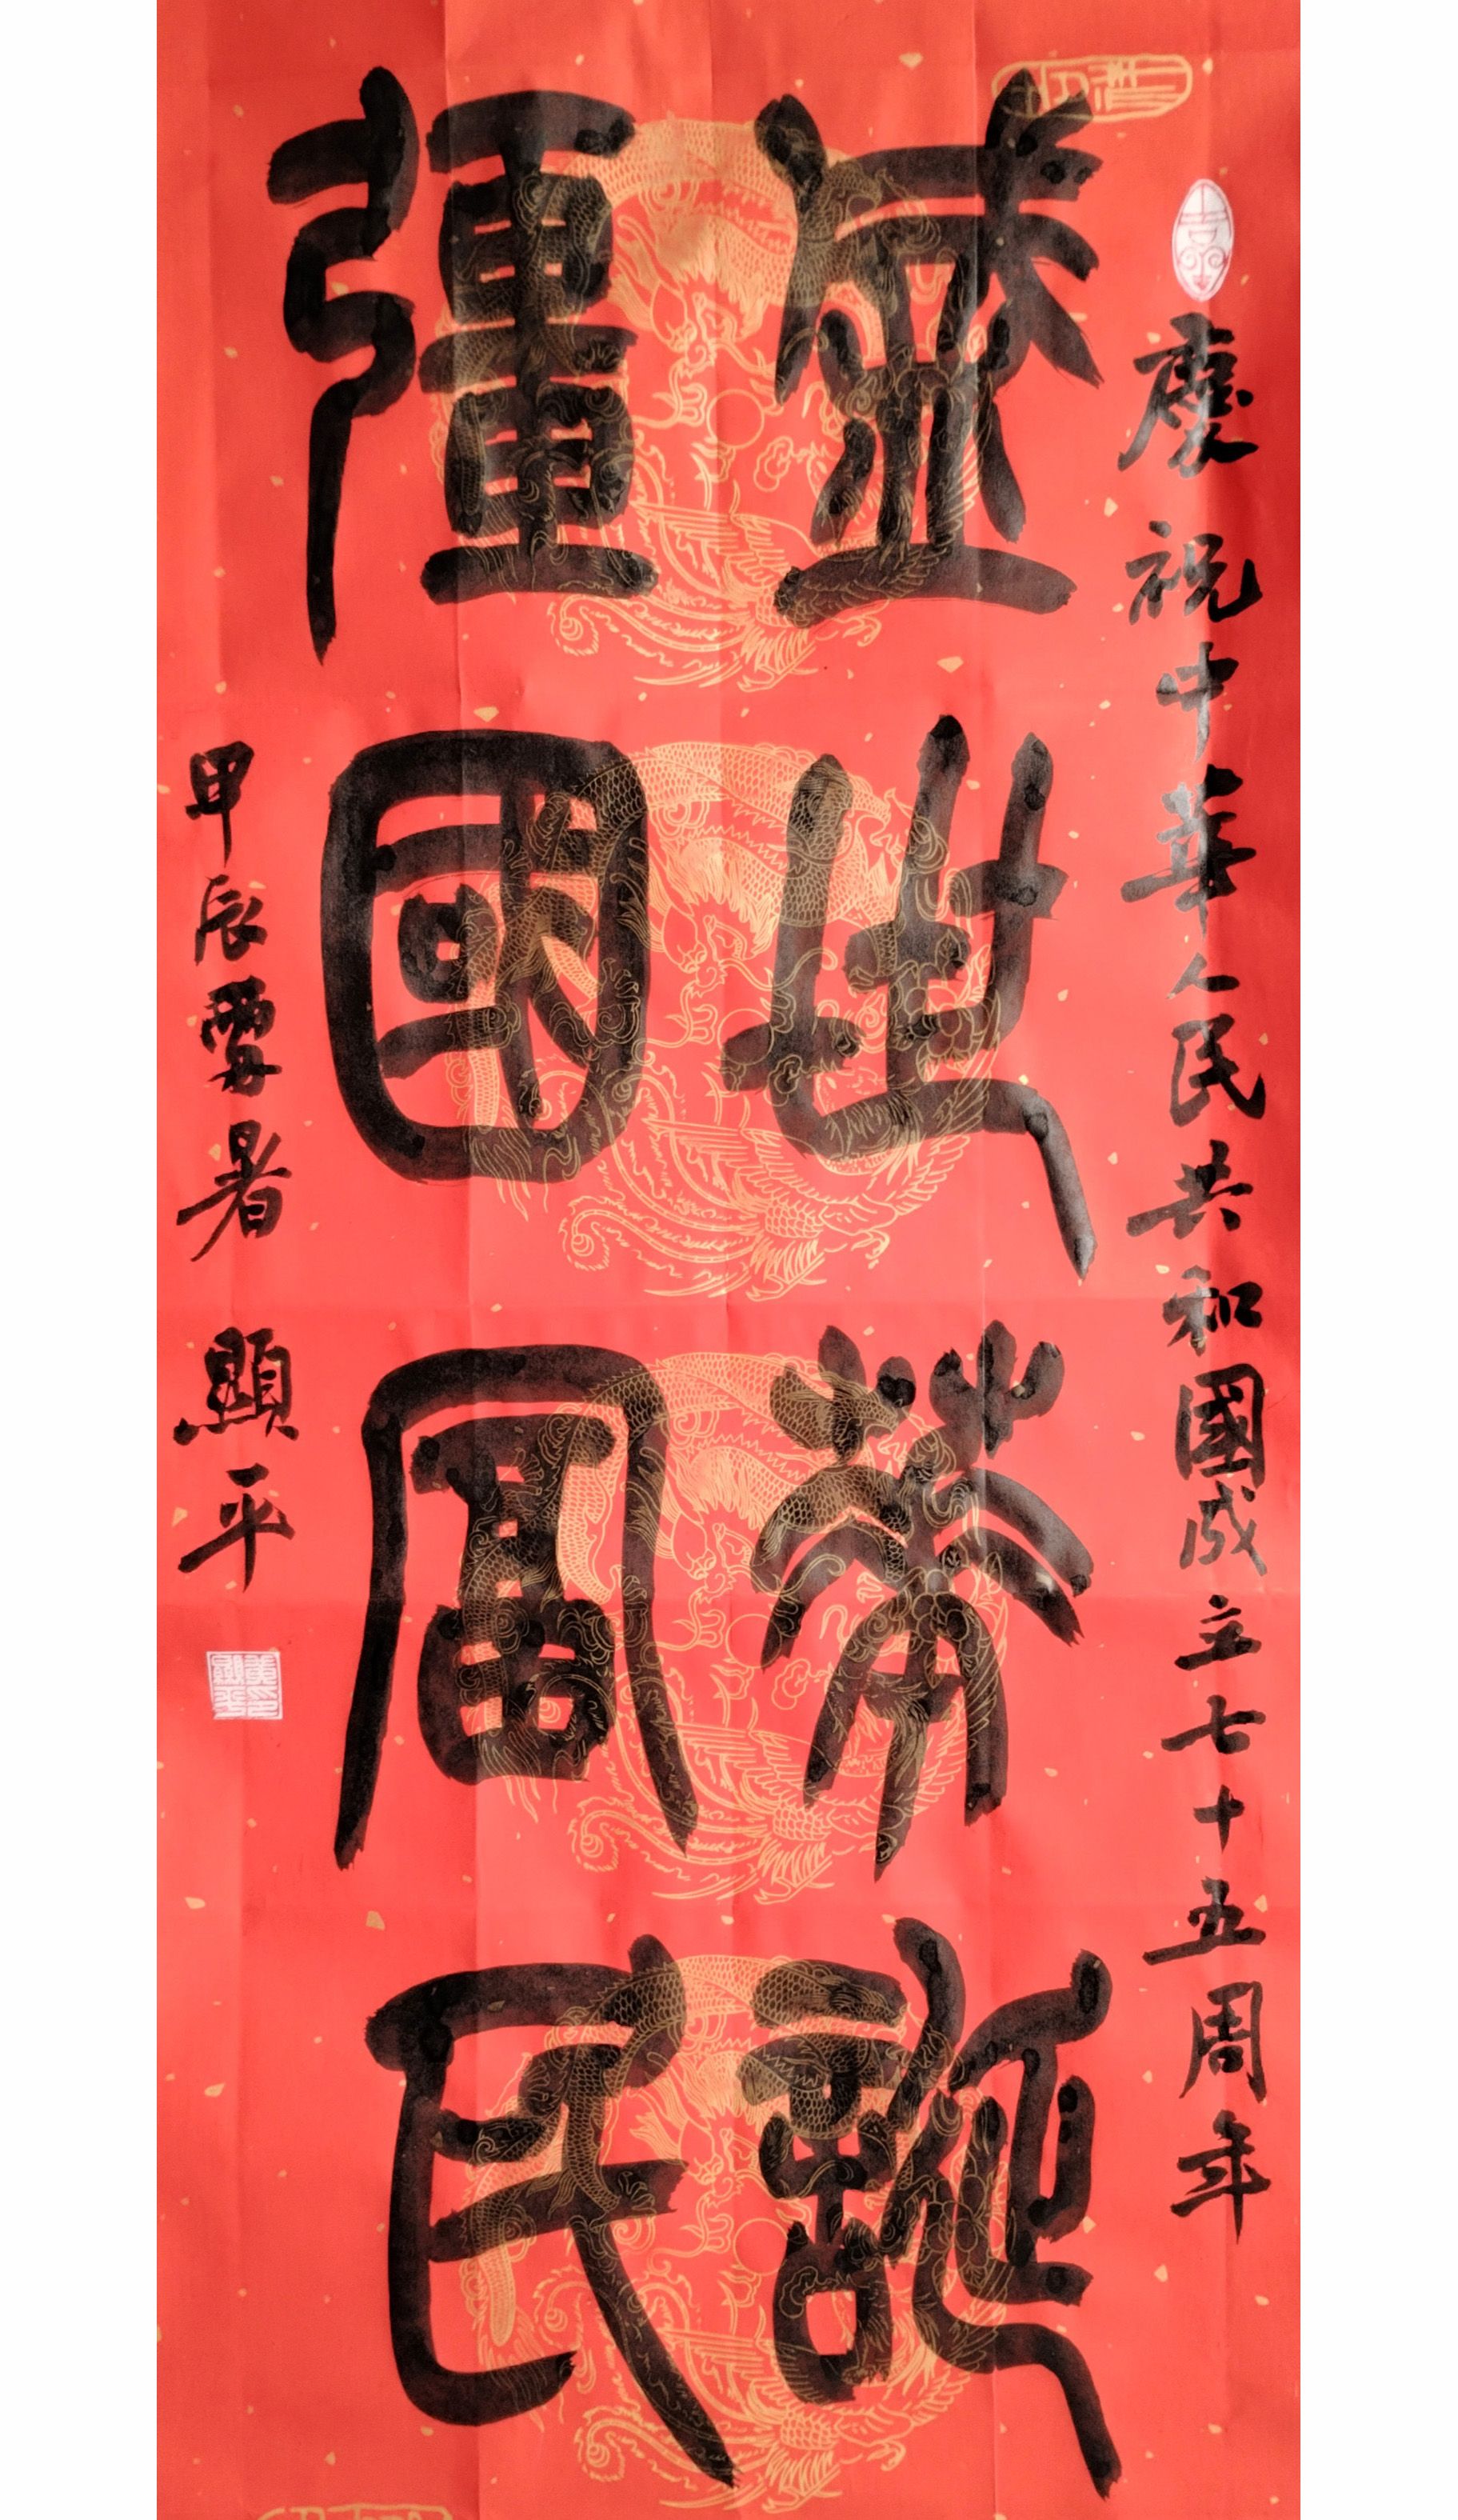 慶祝中華人民共和國成立七十五周年
盛世華誕
彊國富民
甲辰處暑 顯平